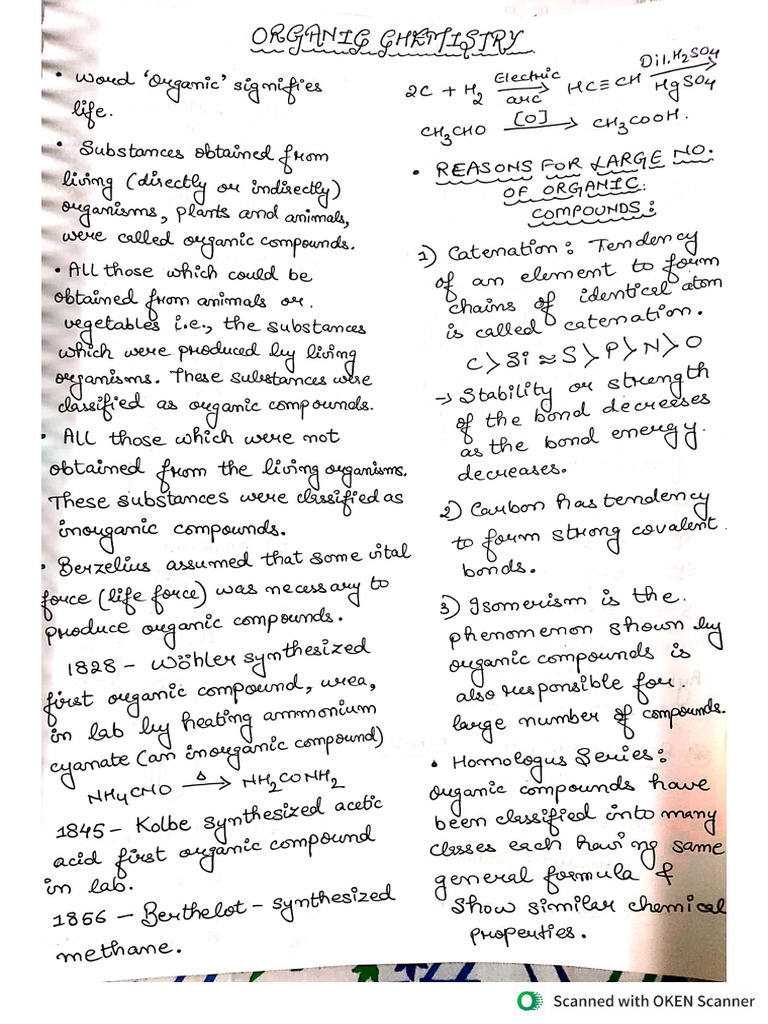 ORGANIC CHEMISTRY
• Word 'Organic' signifies
life.
• Substances obtained from
living (directly or indirectly)
organisms, plants and animals,
were called organic compounds.
• All those which could be
obtained from animals or.
vegetables i.e., the substances
which were produced by living
organisms. These substances were
classified as organic compounds.
• All those which were not
obtained from the living organisms.
These substances were classified as
inorganic compounds.
• Berzelius assumed that some vital
force (life force) was necessary to
produce organic compounds.
1828 - Wöhler synthesized
first organic compound, urea,
in lab by heating ammonium
cyanate (an inorganic compound)
NH4CNO Δ→ NH2CONH2
1845 - Kolbe synthesized acetic
acid first organic compound
in lab.
1856 - Berthelot - synthesized
methane.
2C + H2 Electric arc→ HC≡CH Dil. H2SO4 HgSO4→
CH3CHO [O]→ CH3COOH.
• REASONS FOR LARGE NO.
OF ORGANIC
COMPOUNDS:
1) Catenation: Tendency
of an element to form
chains of identical atom
is called catenation.
C > Si ≈ S > P > N > O
→ Stability or strength
of the bond decreases
as the bond energy.
decreases.
2) Carbon has tendency
to form strong covalent
bonds.
3) Isomerism is the.
phenomenon shown by
organic compounds is
also responsible for.
large number of compounds.
• Homologus Series:
organic compounds have
been classified into many
classes each having same
general formula &
Show similar chemical
properties.
Scanned with OKEN Scanner